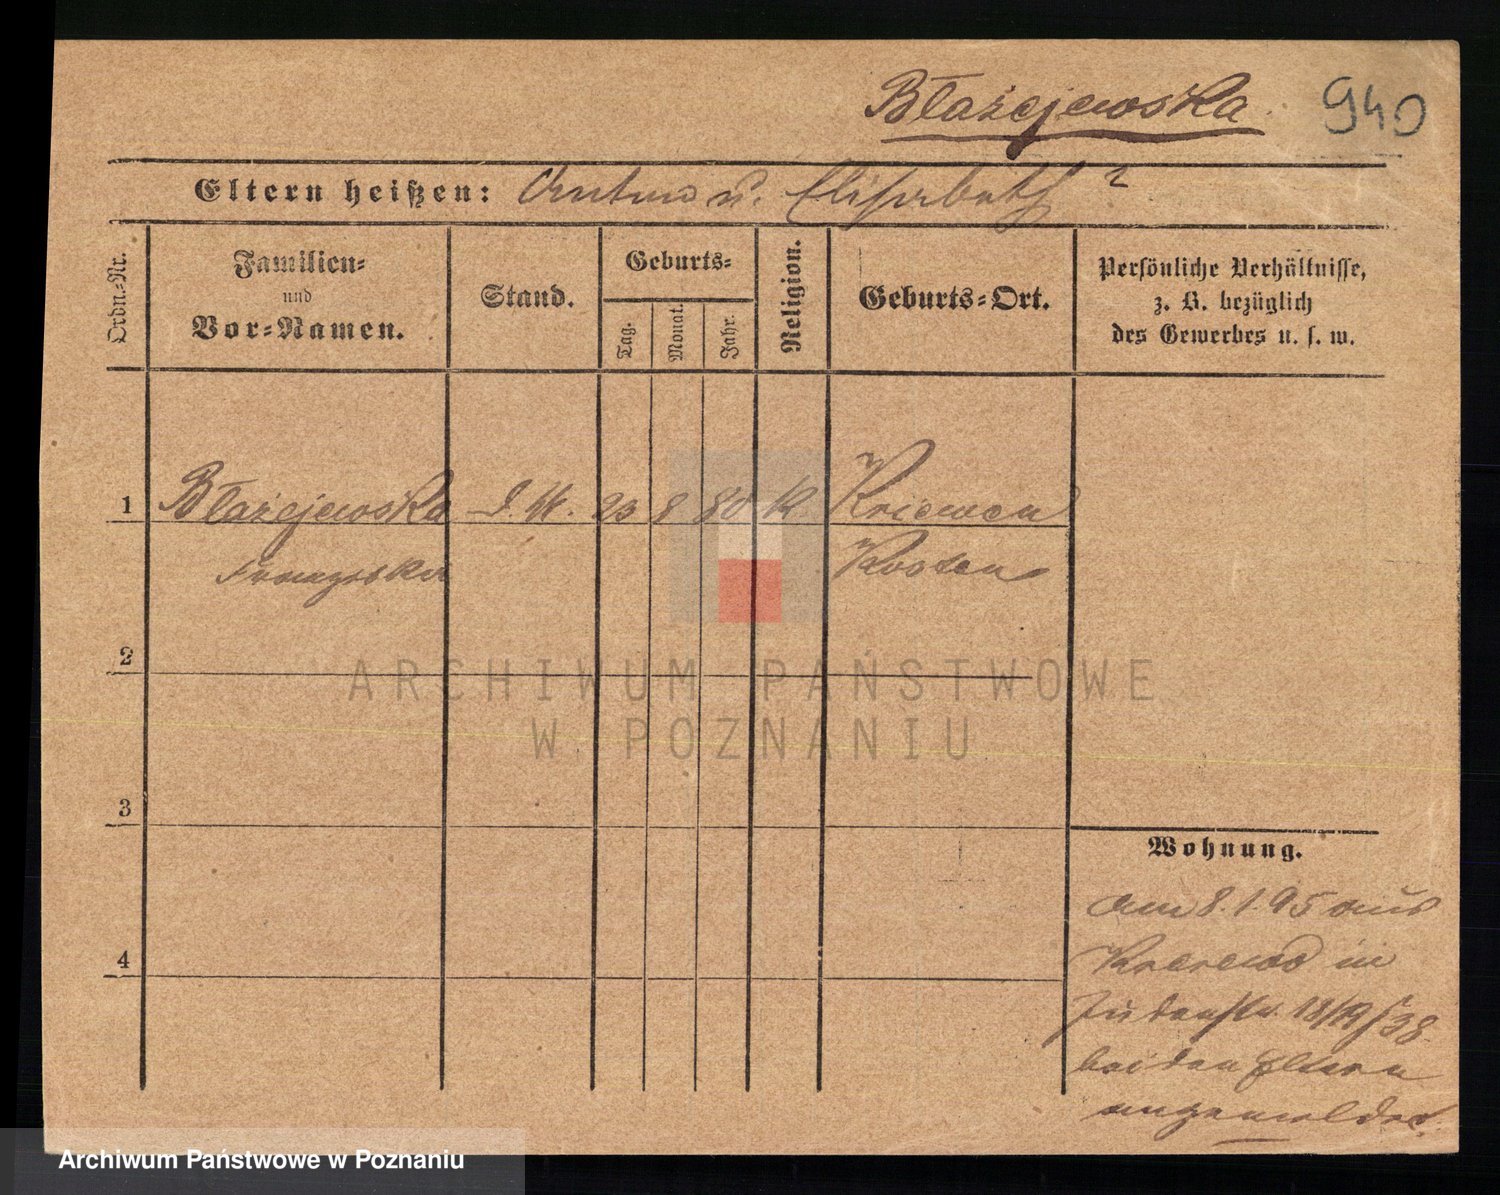 Błażejewska 940
Eltern heißen: Anton u. Elisabeth ?
Ordn.-Nr.
Familien-
und
Vor-Namen.
Stand.
Geburts-
Tag.
Monat.
Jahr.
Religion.
Geburts-Ort.
Persönliche Verhältnisse,
z. B. bezüglich
des Gewerbes u. s. w.
1 Błażejewska 23 8 80 K. Kriewen
Kosten
2
3
4
Wohnung.
am 8.1.95 aus
in
18/19/38.
bei den Eltern
angemeldet.
ARCHIWUM PAŃSTWOWE
W POZNANIU
Archiwum Państwowe w Poznaniu